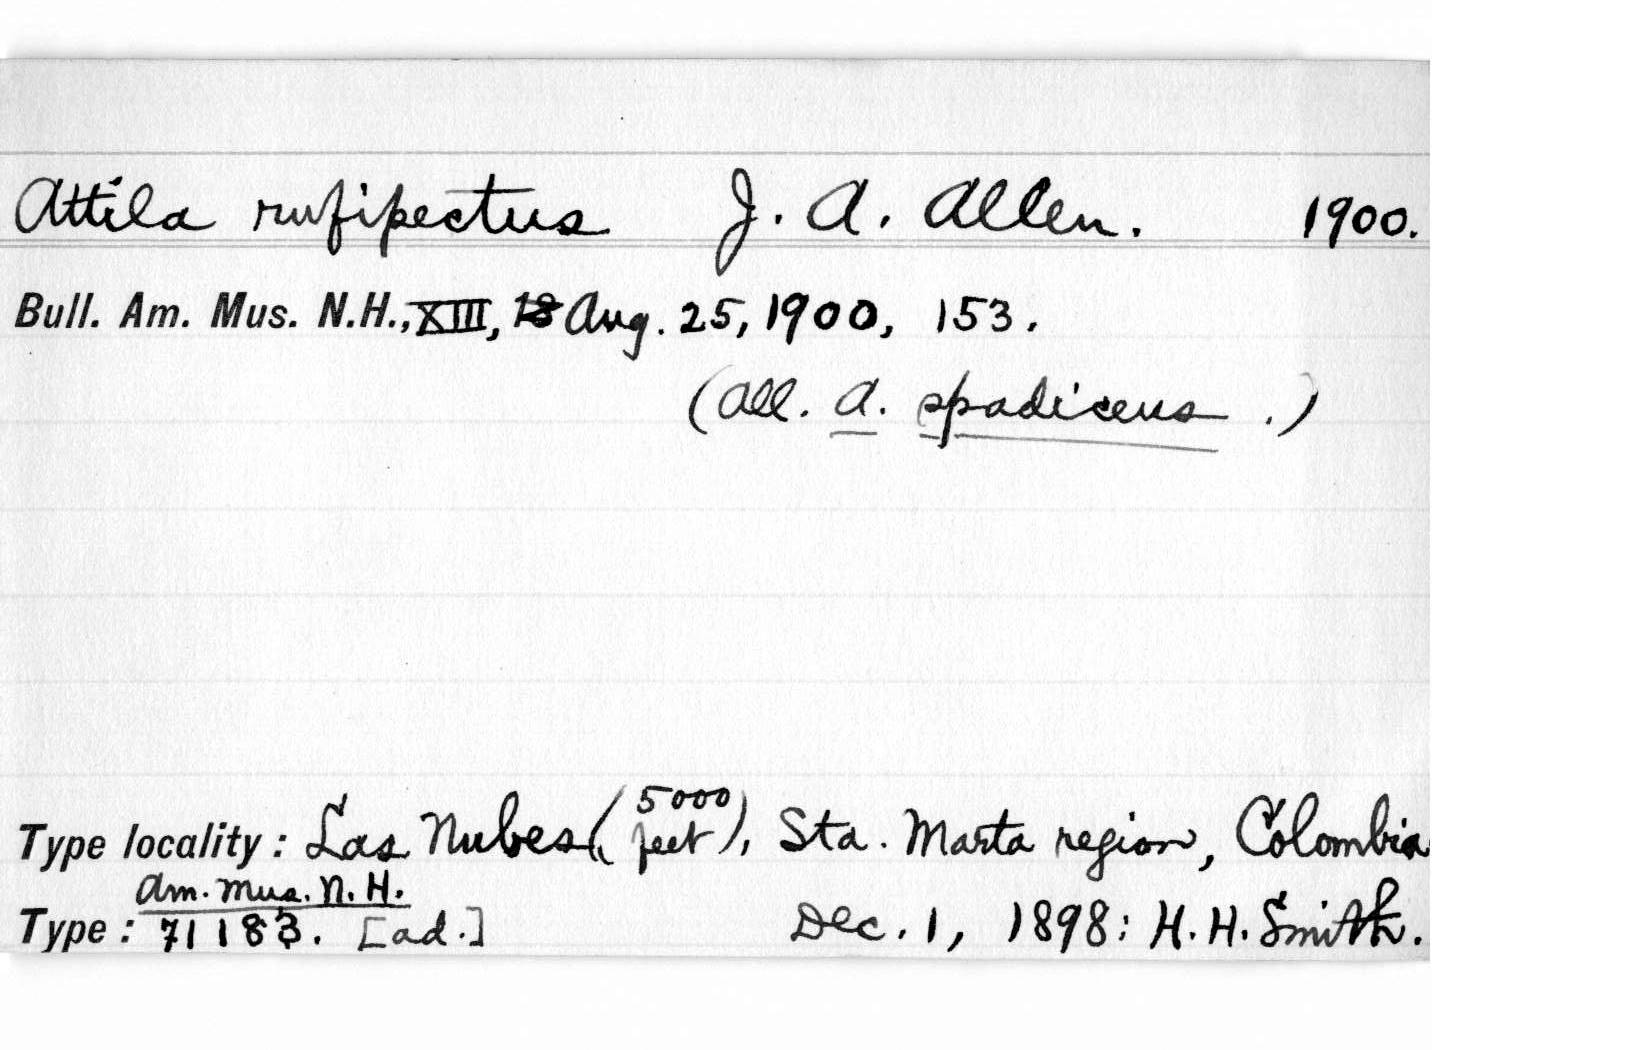 Attila rufipectus J. A. Allen. 1900.
Bull. Am. Mus. N.H., XIII, Aug. 25, 1900, 153.
(All. A. spadiceus.)
Type locality: Las Nubes (5000 feet), Sta. Marta region, Colombia
Am. Mus. N. H.
Type: 71183. [ad.] Dec. 1, 1898: H. H. Smith.